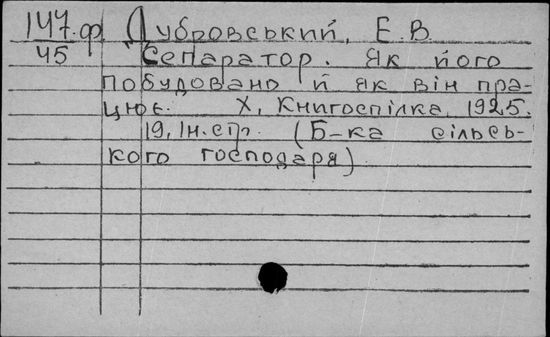 147.ф Дубровський, Е. В.
45 Сепаратор. Як його
побудовано й як він пра-
цює. Х, Книгоспілка, 1925.
19, Ін. стр. (Б-ка сільсь-
кого господаря).